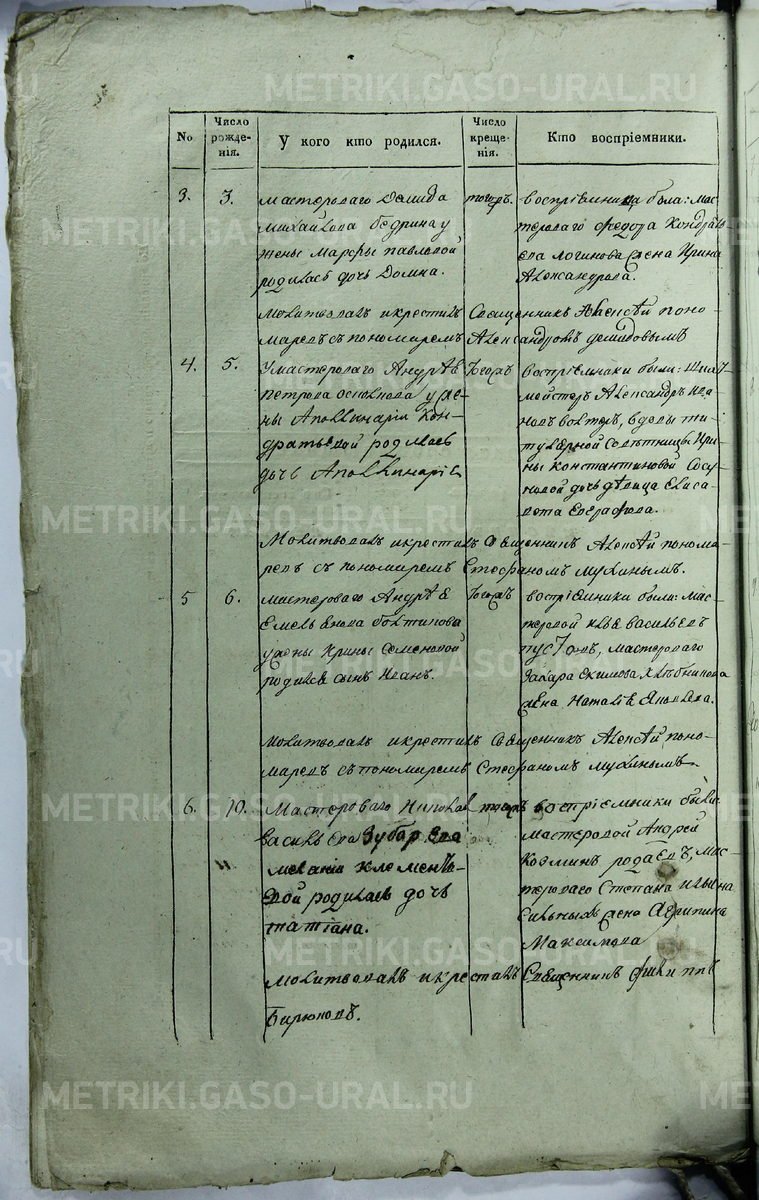 METRIKI.GASO-URAL.RU
No
Число рожде-нія.
У кого кто родился.
Число креще-нія.
Кто воспріемники.
3. 3. мастероваго Демида
Михайлова Бедрина у
жены Марфы Павловой
родилась дочь Домна.
тогожъ.
Воспріемница была: мас-
тероваго Федора
Логинова жена Ирина
Александрова.
Молитвовалъ и крестилъ Священникъ Алексѣй Поно-
маревъ съ пономаремъ Александромъ Демидовымъ
4. 5. У мастероваго Андрѣя
Петрова у же-
ны Аполлинаріи Кон-
дратьевой родилась
дочь Аполлинарія
тогожъ
воспріемники были:
мейстеръ Александръ Ива-
новъ вдовы ти-
тулярной Совѣтницы Ири-
ны Константиновой
дочь дѣвица Елиса-
вета
Молитвовалъ и крестилъ Священникъ Алексѣй Понома-
ревъ съ пономаремъ Стефаномъ Мухинымъ.
5 6. мастероваго Андрѣя
Емельянова
у жены Ирины Семеновой
родился сынъ Иванъ.
тогожъ
воспріемники были: мас-
теровой Илья Васильевъ
мастероваго
Захара Екимова Хлѣбникова
жена Наталья Яковлева.
Молитвовалъ и крестилъ Священникъ Алексѣй Поно-
маревъ съ пономаремъ Стефаномъ Мухинымъ.
6. 10. Мастероваго Николая
Васильева Зубарева
Меланіи Клементь-
евой родилась дочь
Татіана.
тогожъ
воспріемники были
мастеровой Андрей
Козминъ мас-
тероваго Степана Ильина
жена Агрипина
Максимова
молитвовалъ и крестилъ Священникъ Филиппъ
Бирюковъ.
METRIKI.GASO-URAL.RU